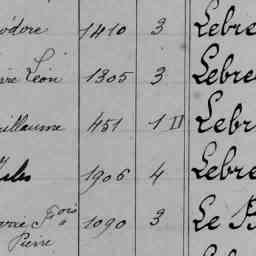 odore 1410 3 Lebre
Léon 1305 3 Lebre
uillaume 451 1 II Lebr
Jules 1906 4 Lebre
arie Fçois 1090 3 Le B
Pierre